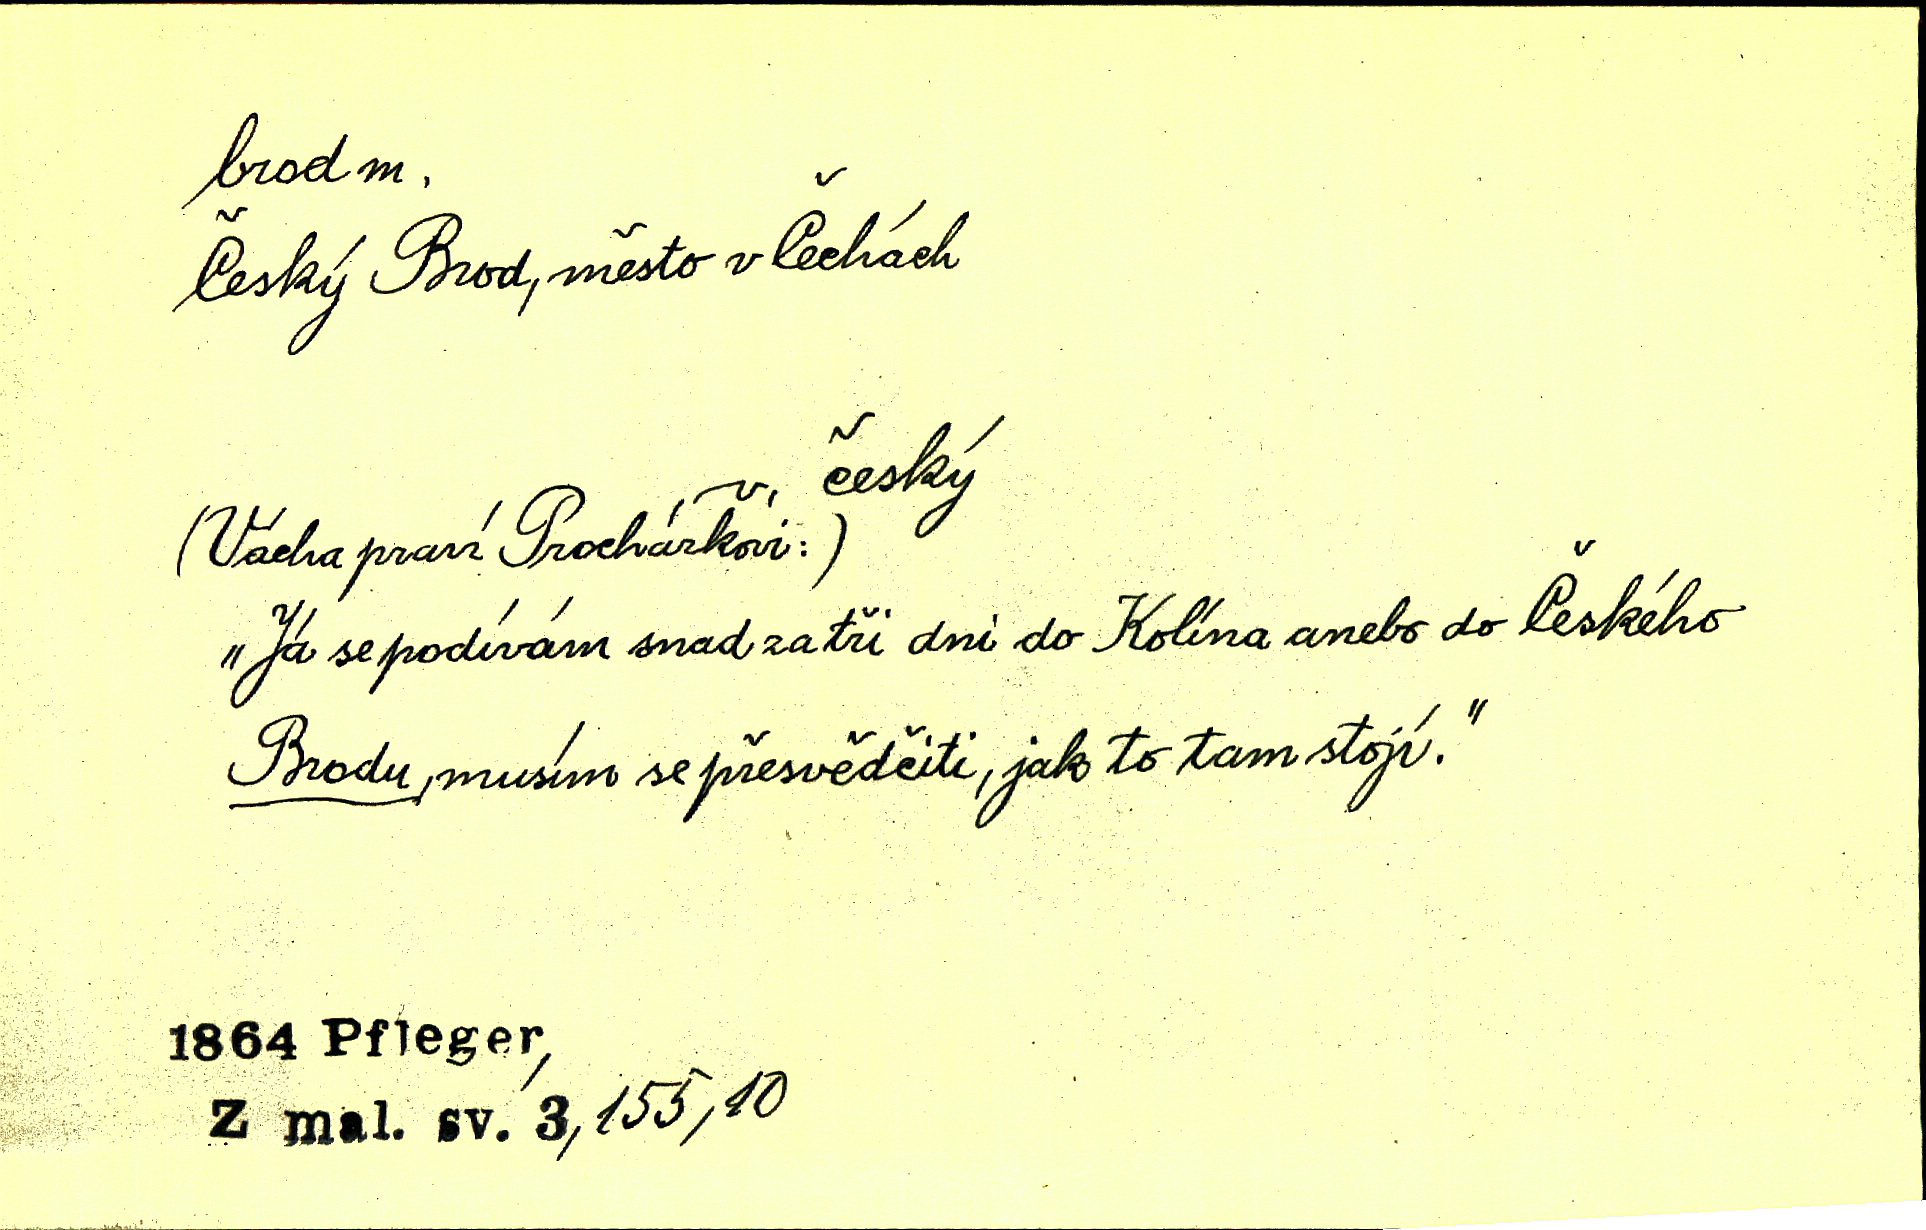 brod m.
Český Brod, město v Čechách
v. český
(Vácha praví Procházkovi:)
„Já se podívám snad za tři dni do Kolína anebo do Českého
Brodu, musím se přesvědčiti, jak to tam stojí."
1864 Pfleger,
Z mal. sv. 3, 155, 10